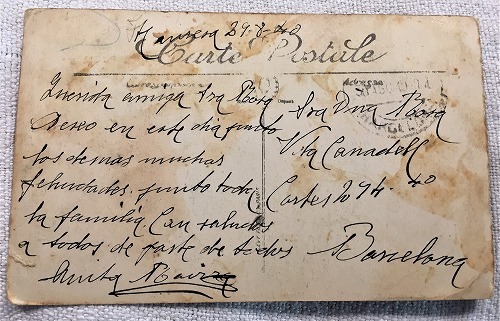 Manresa 29-8-40
Carte Postale
Querida amiga Sra Rosa
Deseo en este dia junto
los demas muchas
felicidades. junto toda
la familia Can saludos
a todos de parte de todos
Anita
Sra Dna Rosa
Vila Canadell
Cortes 294
Barcelona